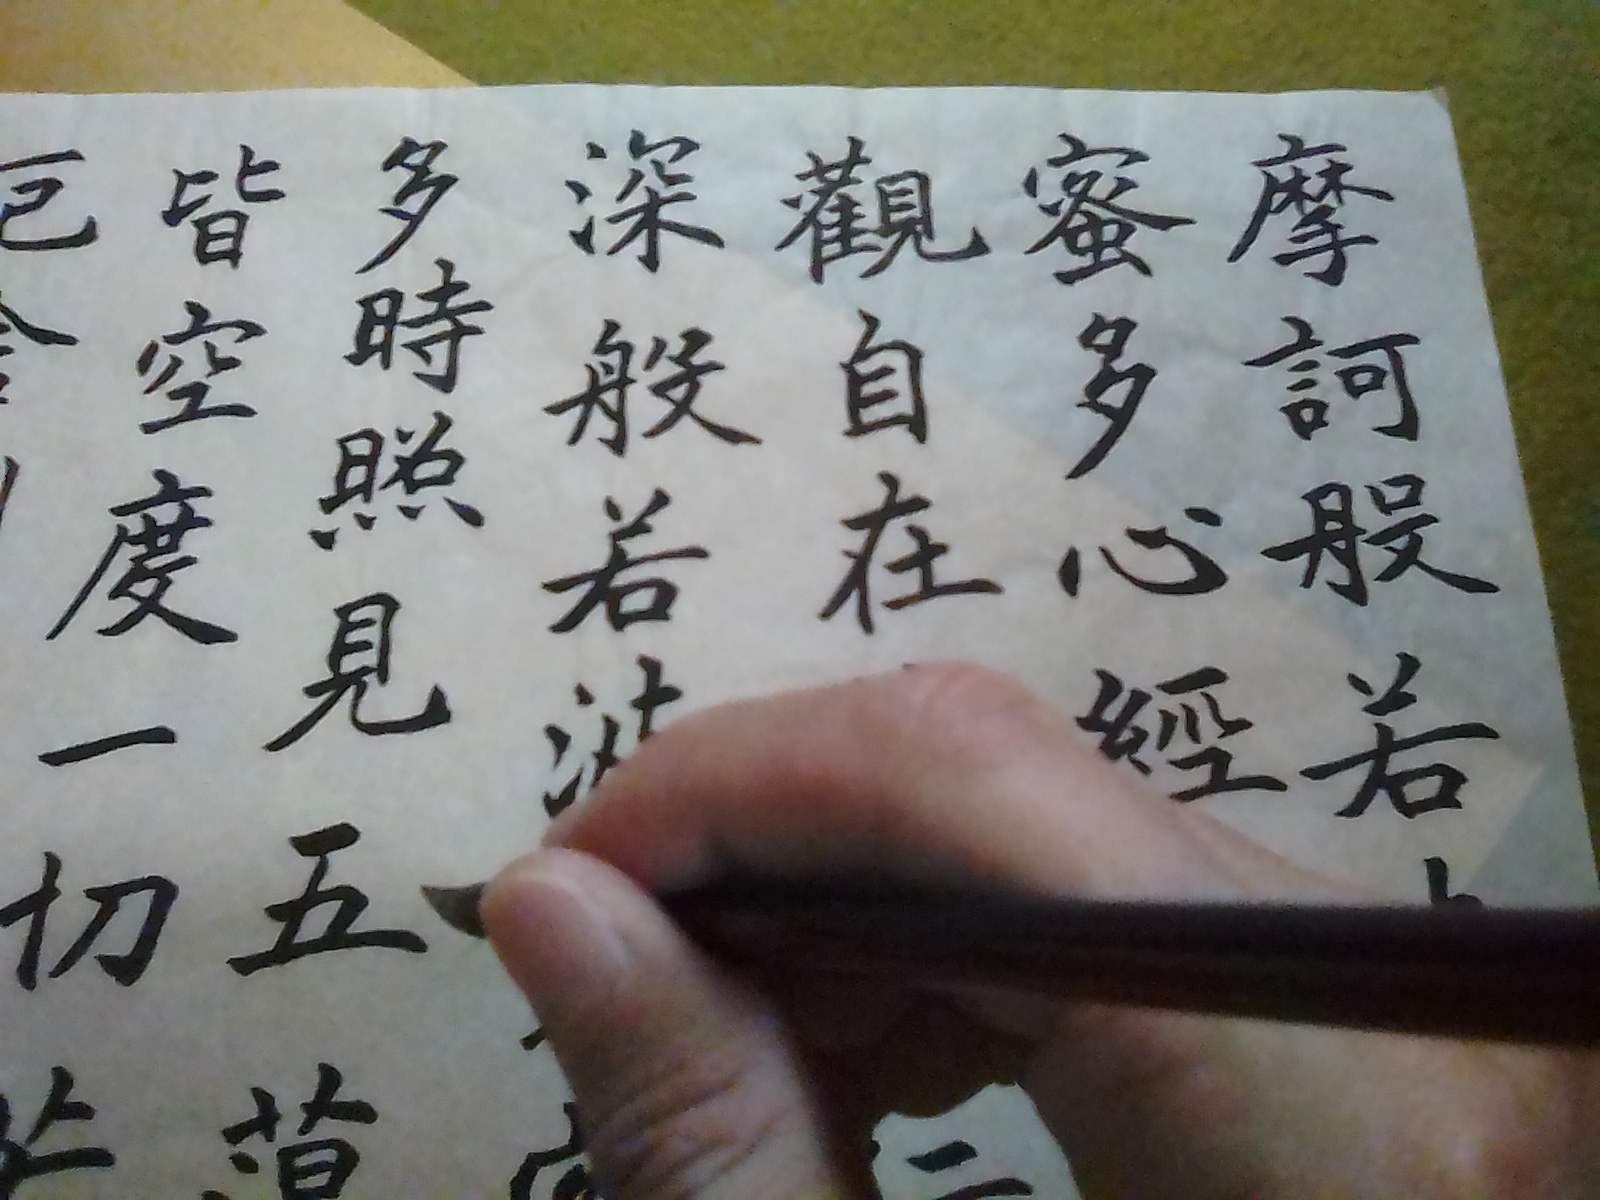 摩訶般若
蜜多心經
觀自在
深般若波
多時照見五
皆空度一切
厄舍利